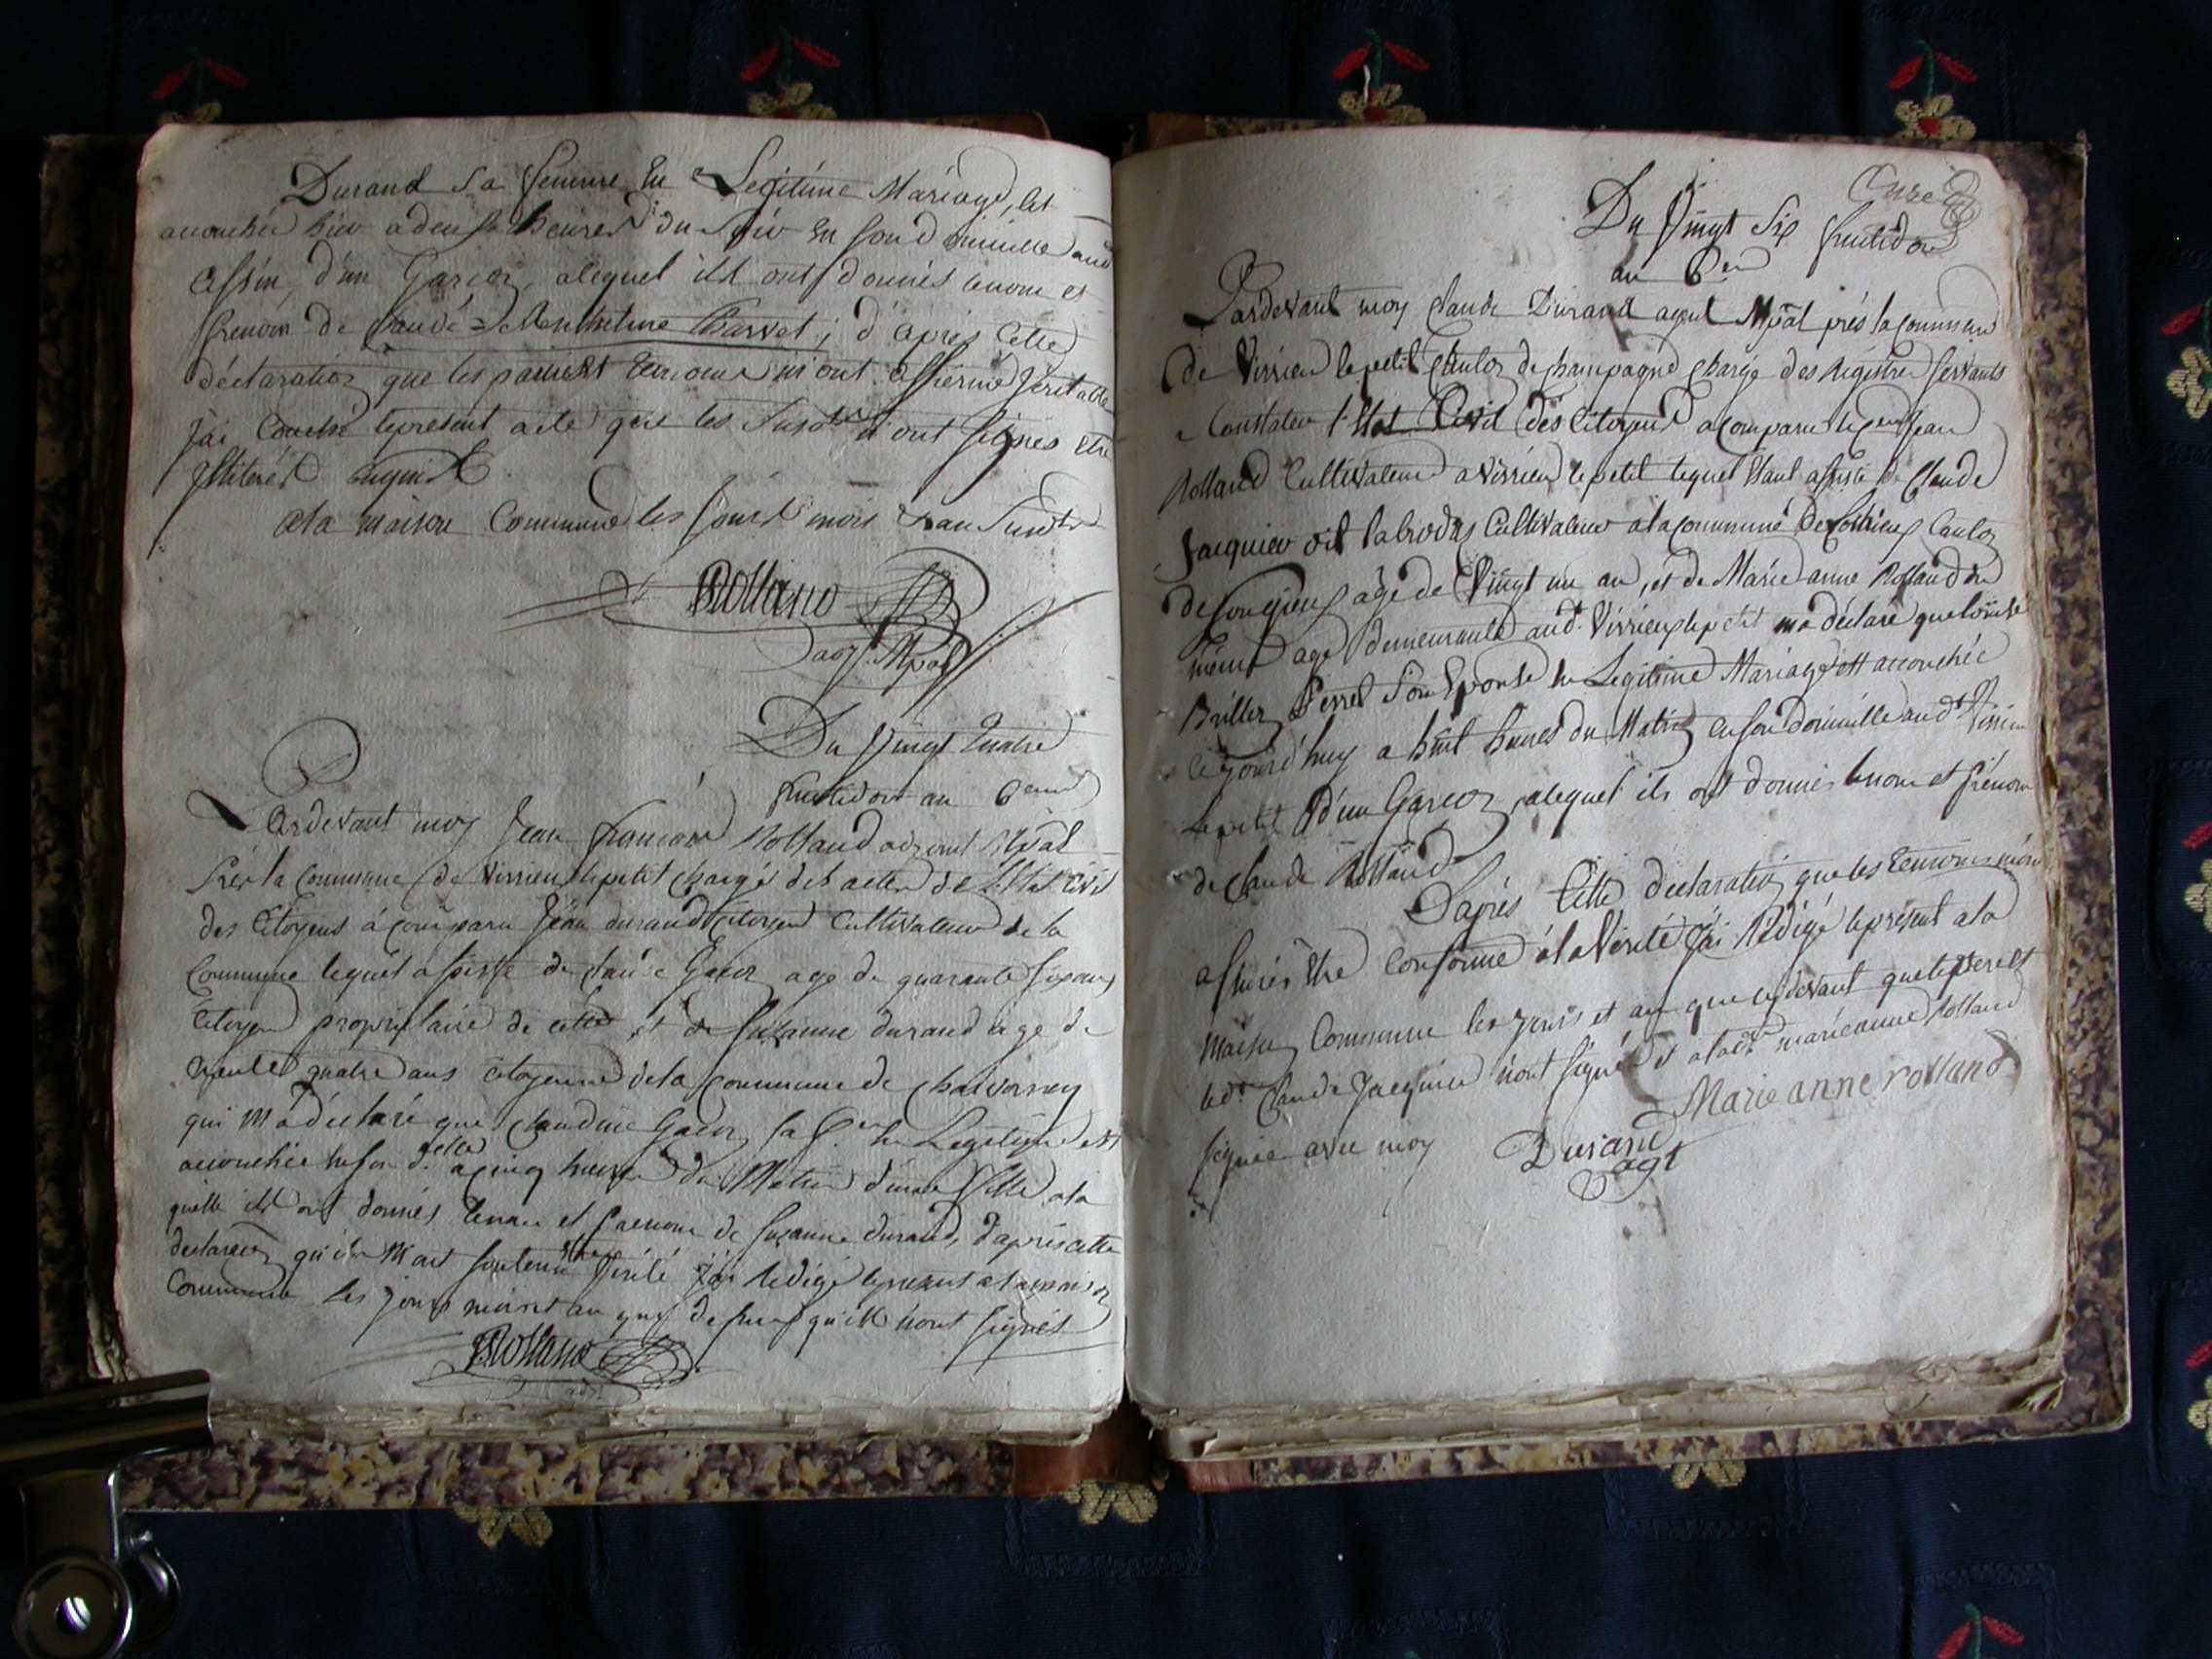 Durand Sa femme En Legitime Mariage, Est
accouchée hier a deux heures du Soir En son Domicille aud
Cessin, d'un Garcon, alequel ils ont donnés lenom et
prenom de Claude = Charvet ; d'apres Cette
déclaration que les pairest temoins m'ont affirmé Veritable
J'ai Couché lepresent acte que les Susdts n'ont signés Etre
Illiterés Enquis
ala maison Commune les jours mois & an Susdts
JRolland
adj. Mpal
Du Vingt Quatre
fructidor an 6eme
Pardevant moy Jean francois Rolland adjoint Mpal
Près la Commune de Virrieux lepetit chargé des actes de L'Etat Civil
des Citoyens á comparu Jean durand Citoyen Cultivateur de la
Commune lequel assisté de Claude age de quarante six ans
Citoyen proprietaire de cette et de Suzanne durand age de
trente quatre ans Citoyenne dela Commune de Chavornay
qui M'a déclaré que Claudine sa f.e En Legitime est
accouchée En son d.elle a cinq heures du Matin d'une fille ala
quelle ils ont donnés lenom et Prenom de Suzanne durand, d'apres cette
declaration qu'ils M'ont soutenu Etre Vérité J'ai Redigé lepresent ala maison
Commune les jours mois et an que dessus qu'ils n'ont signés
JRolland
adj.
Onze
Du Vingt Six fructidor
an 6eme
Pardevant moy Claude Durand agent Mpal près la Commune
de Virrieu lepetit Canton de champagne chargé des Régistres servants
a Constater l'Etat Civil des Citoyens a comparu le Cen Jean
Rolland Cultivateur a Virrieu lepetit lequel Etant assisté de Claude
Jacquier dit Cultivateur ala Commune de Canton
de Songieux agé de Vingt un an, et de Marie anne Rolland du
même age demeurante aud. Virrieux lepetit m'a déclaré que
Perret Son Epouse En Legitime Mariage est accouchée
Cejourd'huy a huit heures du Matin En son domicille aud. Virrieu
Lepetit d'un Garcon, alequel ils ont donnés lenom et prénom
de Claude Rolland
D'aprés Cette declaration que les temoins m'ont
assurés Etre Conforme á la Vérité J'ai Rédigé lepresent a la
Maison Commune les jours et an que cy devant que lepere et
led. Claude Jacquier n'ont signé et alad. marieanne Rolland
signée avec moy
Marie anne rolland
Durand
agt